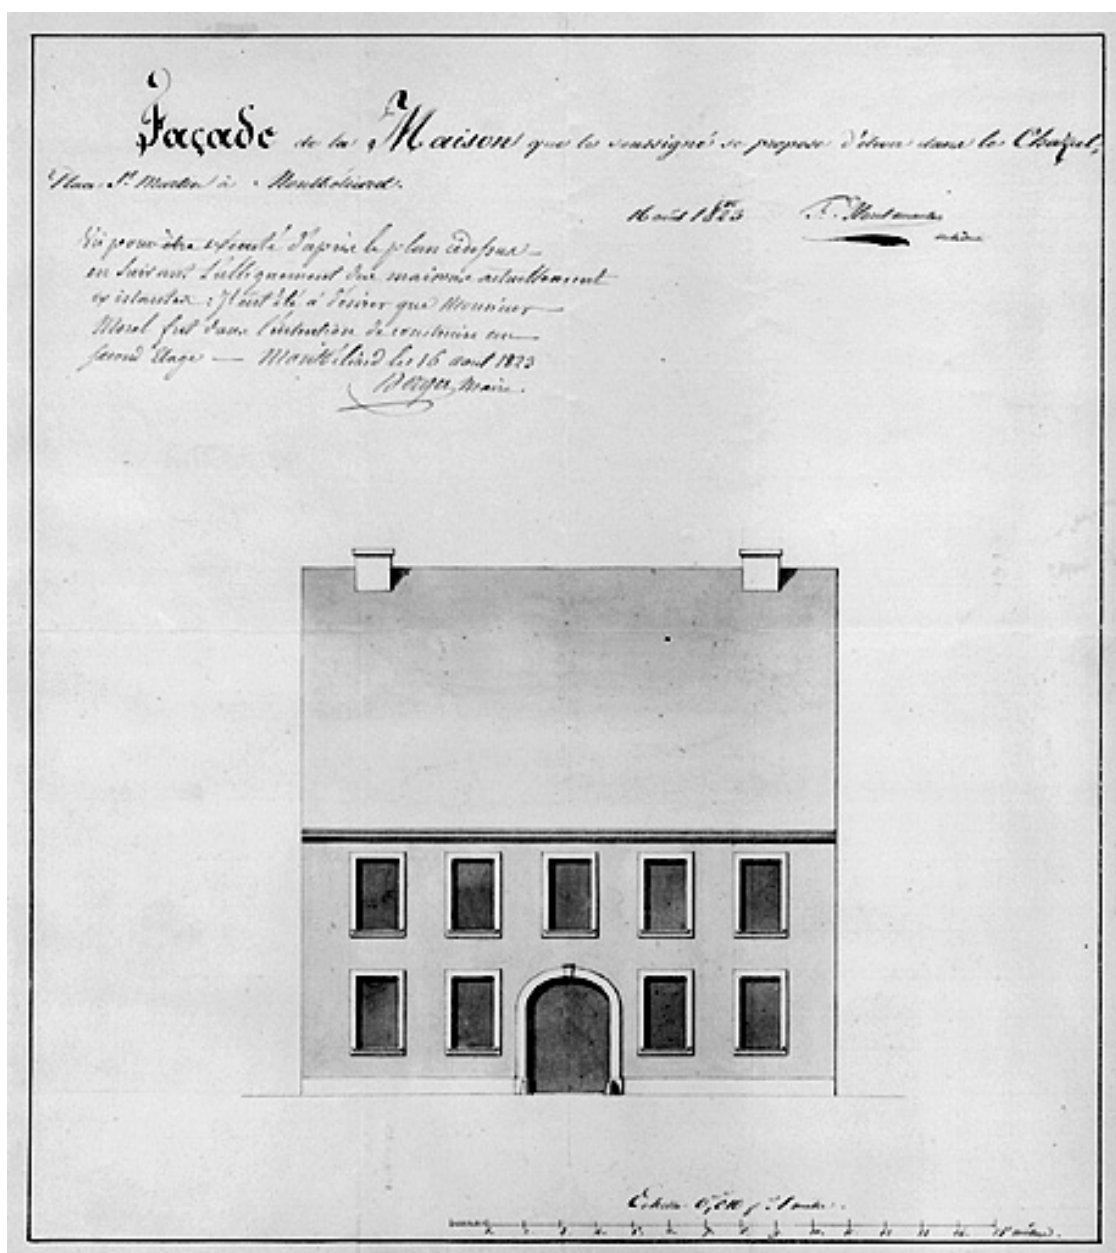 Façade de la Maison que le soussigné se propose d'élever dans le
Place St. Martin à Montbéliard.
16 août 1823
Vû pour être exécuté d'après le plan cidessus
en suivant l'allignement des maisons actuellement
existantes : Il eut été à désirer que Monsieur
Morel fut dans l'intention de construire un
second étage — Montbéliard le 16 aout 1823
Berger, Maire.
Echelle 0,010 p. 1 mètre.